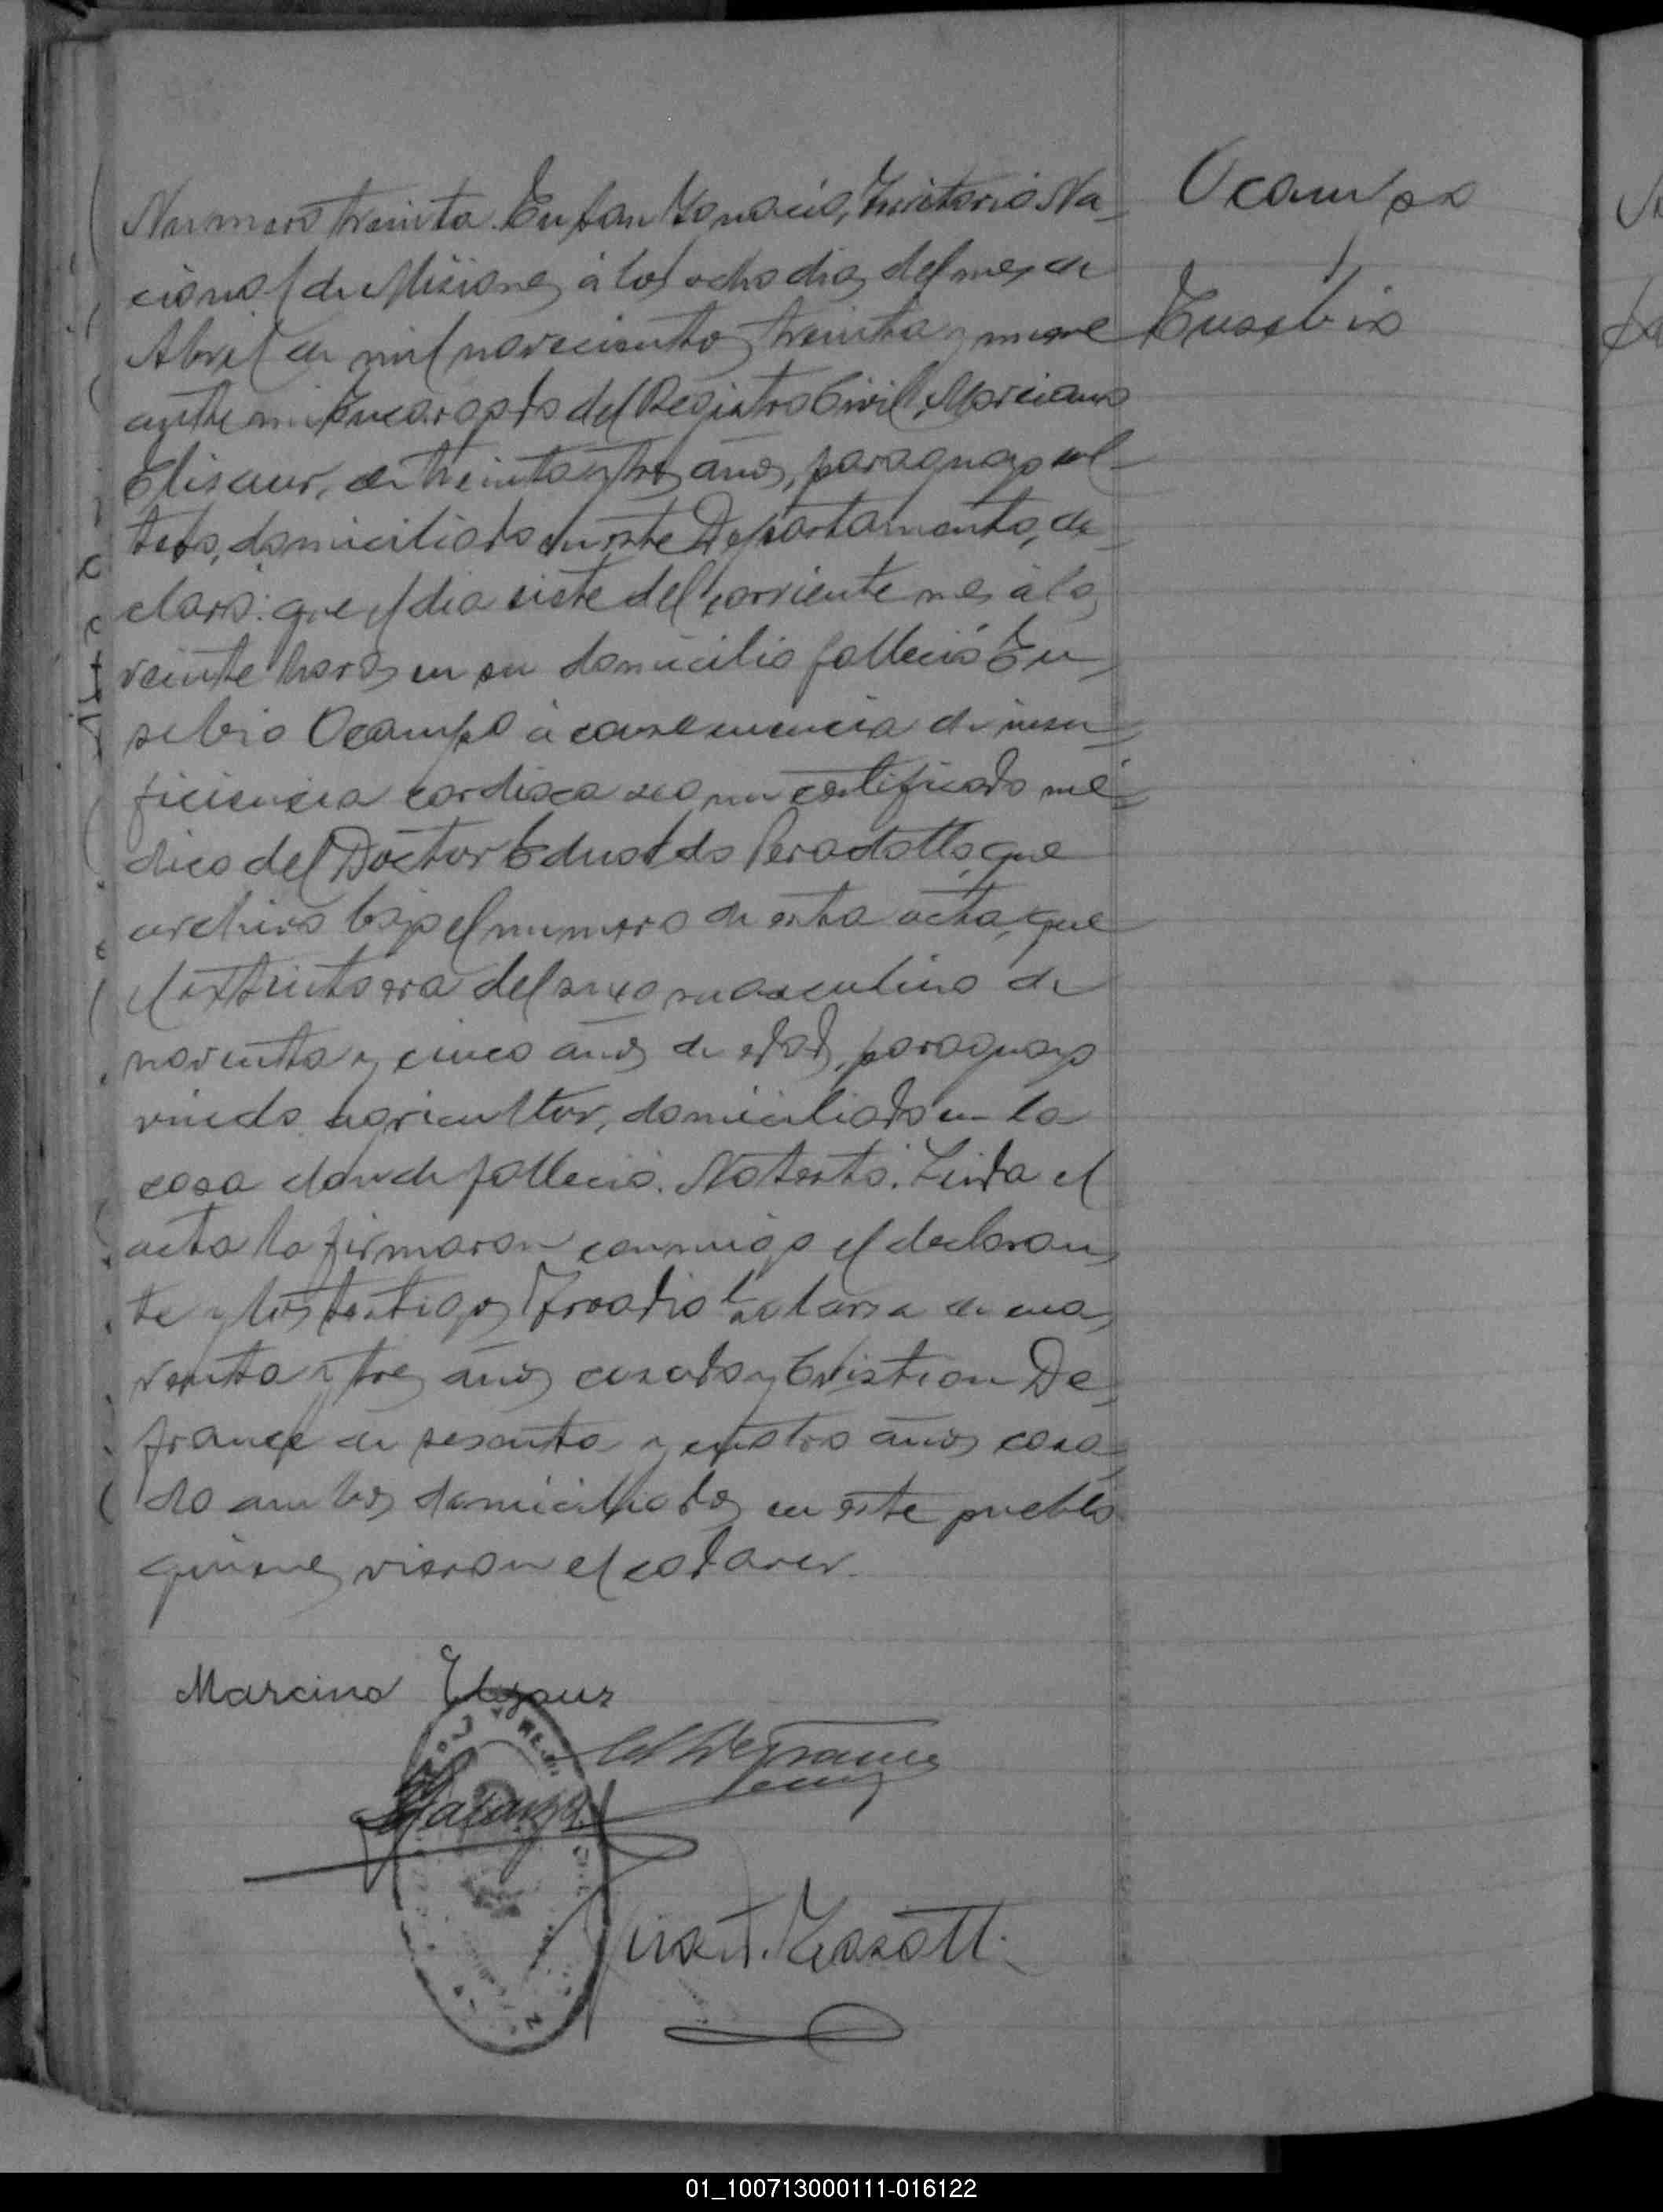 Numero treinta. En San Ygnacio, Territorio Na-
cional de Misiones, á los ocho dias del mes de
Abril de mil novecientos treinta y nueve
ante mi Encargado del Registro Civil, Marciano
Elisaur, de treinta y tres años, paraguayo sol-
tero, domiciliado en este Departamento, de-
claró: que el dia siete del corriente mes á las
veinte horas en su domicilio falleció Eu-
sebio Ocampo á consecuencia de insu-
ficiencia cardiaca segun certificado mé-
dico del Doctor Edualdo Peradotto, que
archivo bajo el numero de esta acta, que
el extinto era del sexo masculino de
noventa y cinco años de edad, paraguayo
viudo agricultor, domiciliado en la
casa donde falleció. No testó. Leida el
acta la firmaron conmigo el declaran-
te y los testigos de cua-
renta y tres años casado y Cristian De-
france de sesenta y cuatro años casa-
do ambos domiciliados en este pueblo
quienes vieron el cadaver.
Marcino Elysaur
Defrance
Ocampo
Eusebio
01_100713000111-016122